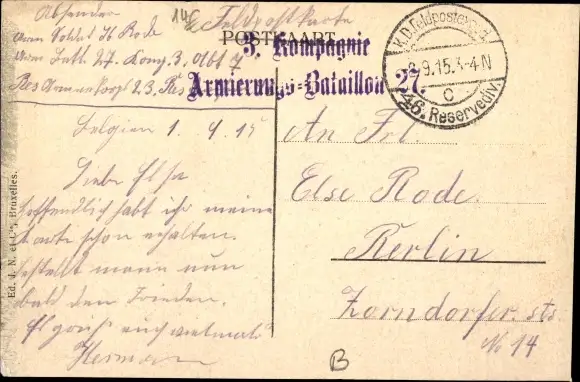 Absender
Arm Soldat H Rode
Arm Batl. 27. Komp. 3. Abtl 7
Res Armeekorps 23. Res
Feldpostkarte
POSTKAART
3. Kompagnie
Armierungs-Bataillon 27.
K.D. Feldpostexped.
8.9.15. 3-4 N
C
46. Reservediv.
Belgien 1. 9. 15
Liebe Elsa
Hoffendlich habt ihr meine
Karte schon erhalten.
bestellt mann nun
bald den Frieden.
Es grüsst euch vielmals
Herman
An Frl.
Else Rode.
Berlin
Zorndorfer str
No 14
B
Ed. J. N. et Cie, Bruxelles.